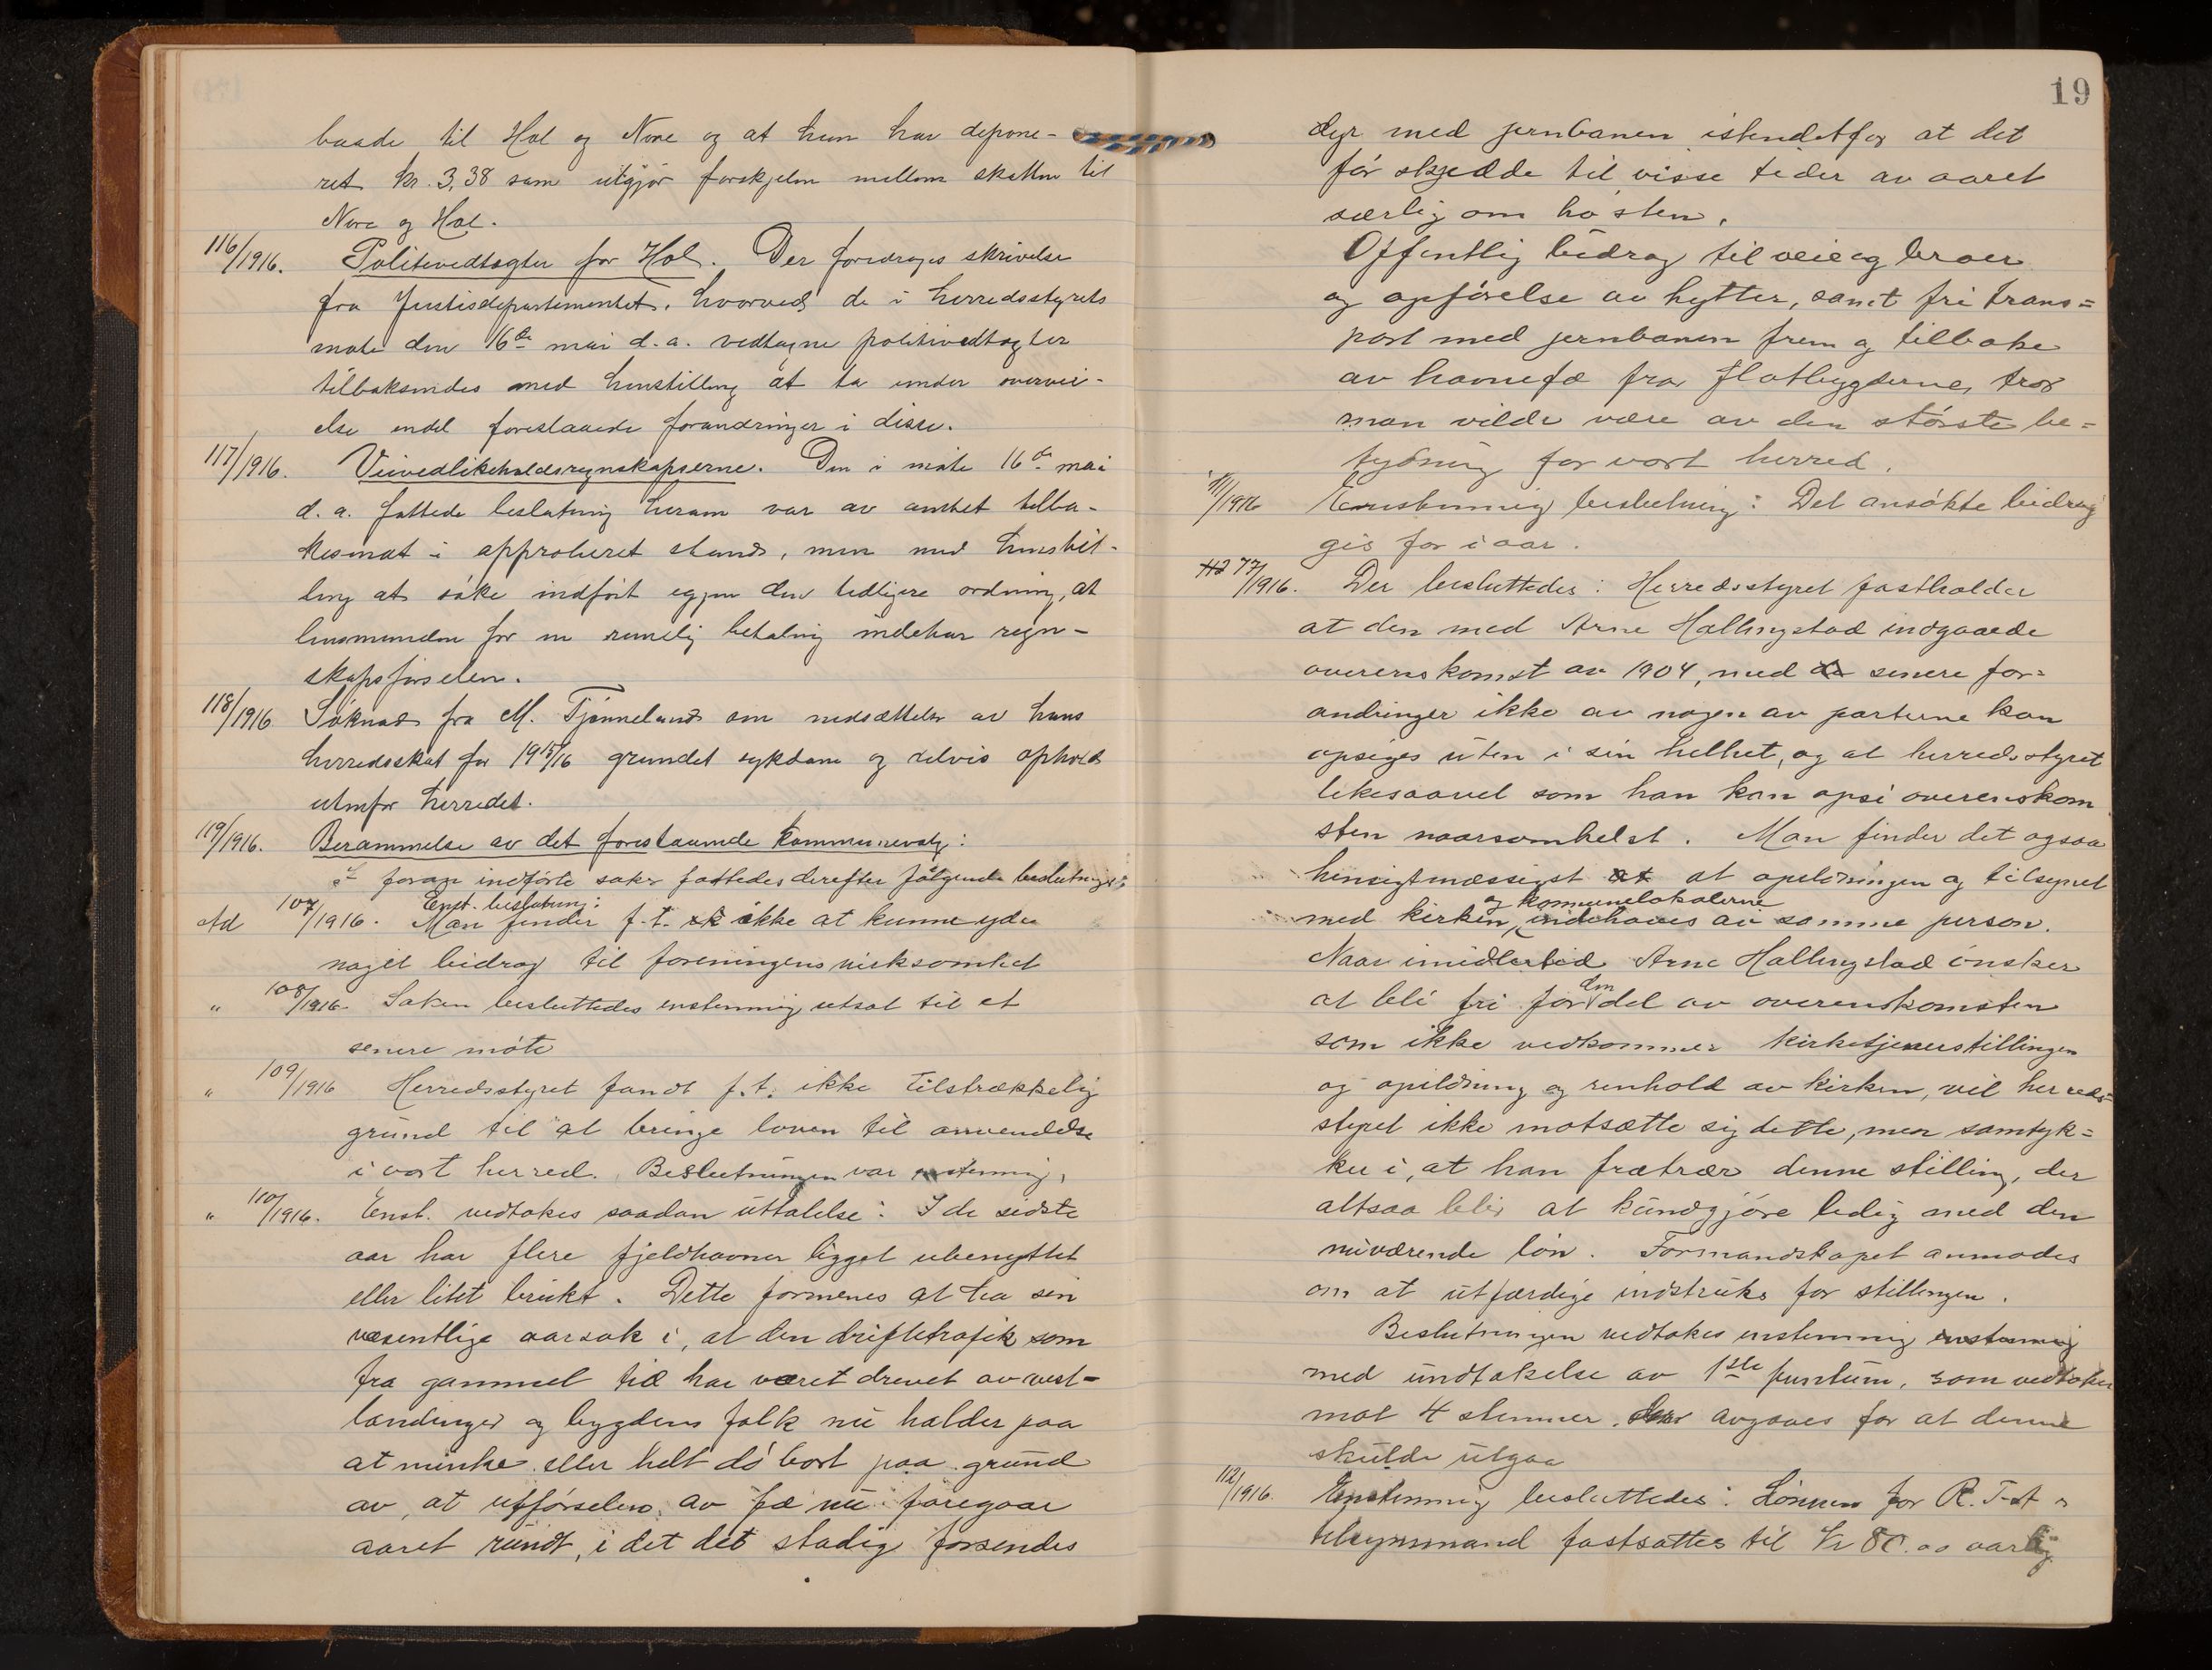 baade til Hol og Nore og at hun har depone-
ret kr. 3,38 som utgjør forskjelen mellem skatten til
Nore og Hol.
116/1916. Politivedtægter for Hol. Der foredrages skrivelse
fra Justisdepartementet, hvorved de i herredsstyrets
møte den 16de mai d.a. vedtagne politivedtægter
tilbakesendes med henstilling at ta under overvei-
else endel foreslaaede forandringer i disse.
117/1916. Veivedlikeholdsregnskapserne. Den i møte 16de mai
d.a. fattede beslutning herom var av amtet tilba-
kesendt i approberet stand, men med henstil-
ling at søke indført igjen den tidligere ordning, at
lensmanden for en rimelig betaling indehar regn-
skapsførselen.
118/1916 Søknad fra M. Tjønneland om nedsættelse av hans
herredsskat for 1915/16 grundet sykdom og delvis ophold
utenfor herredet.
119/1916. Berammelse av det forestaaende kommunevalg:
I foran indførte saker fattedes derefter følgende beslutninger:
Enst. beslutning:
Ad 107/1916. Man finder f.t. ikke at kunne yde
noget bidrag til foreningens virksomhet
" 108/1916. Saken besluttedes enstemmig utsat til et
senere møte
" 109/1916 Herredsstyret fandt f.t. ikke tilstrækkelig
grund til at bringe loven til anvendelse
i vort herred. Beslutningen var enstemmig,
" 110/1916. Enst. vedtokes saadan uttalelse: I de sidste
aar har flere fjeldhavner ligget ubenyttet
eller litet brukt. Dette formenes at ha sin
væsentlige aarsak i, at den driftetrafik som
fra gammel tid har været drevet av vest-
landinger og bygdens folk nu holder paa
at minke eller helt dø bort paa grund
av, at utførselen av fæ nu foregaar
aaret rundt, i det det stadig forsendes
19
dyr med jernbanen istendetfor at det
før skjedde til visse tider av aaret
særlig om høsten.
Offentlig bidrag til veie og broer
og opførelse av hytter, samt fri trans=
port med jernbanen frem og tilbake
av havnefæ fra flatbygderne, tror
man vilde være av den største be=
tydning for vort herred.
111/1916 Enstemmig beslutning: Det ansøkte bidrag
gis for i aar.
77/1916. Der besluttedes: Herredsstyret fastholder
at den med Arne Hallingstad indgaaede
overenskomst av 1904, med senere for=
andringer ikke av nogen av parterne kan
opsiges uten i sin helhet, og at herredsstyret
likesaavel som han kan opsi overenskom
sten naarsomhelst. Man finder det ogsaa
hensigtmæssigst at opeldningen og tilsynet
og kommunelokalerne
med kirken, indehaves av samme person.
Naar imidlertid Arne Hallingstad ønsker
at bli fri for den del av overenskomsten
som ikke vedkommer kirketjenerstillingen
og opildning og renhold av kirken, vil herreds=
styret ikke motsætte sig dette, men samtyk=
ker i, at han fratrær denne stilling, der
altsaa blir at kundgjøre ledig med den
nuværende løn. Formandskapet anmodes
om at utfærdige instruks for stillingen.
Beslutningen vedtokes enstemmig enstemmig
med undtakelse av 1ste punktum, som vedtokes
mot 4 stemmer avgaves for at denne
skulde utgaa
112/1916. Enstemmig besluttedes: Lønnen for R.T-A's
tilsynsmand fastsattes til kr 80.00 aarlig